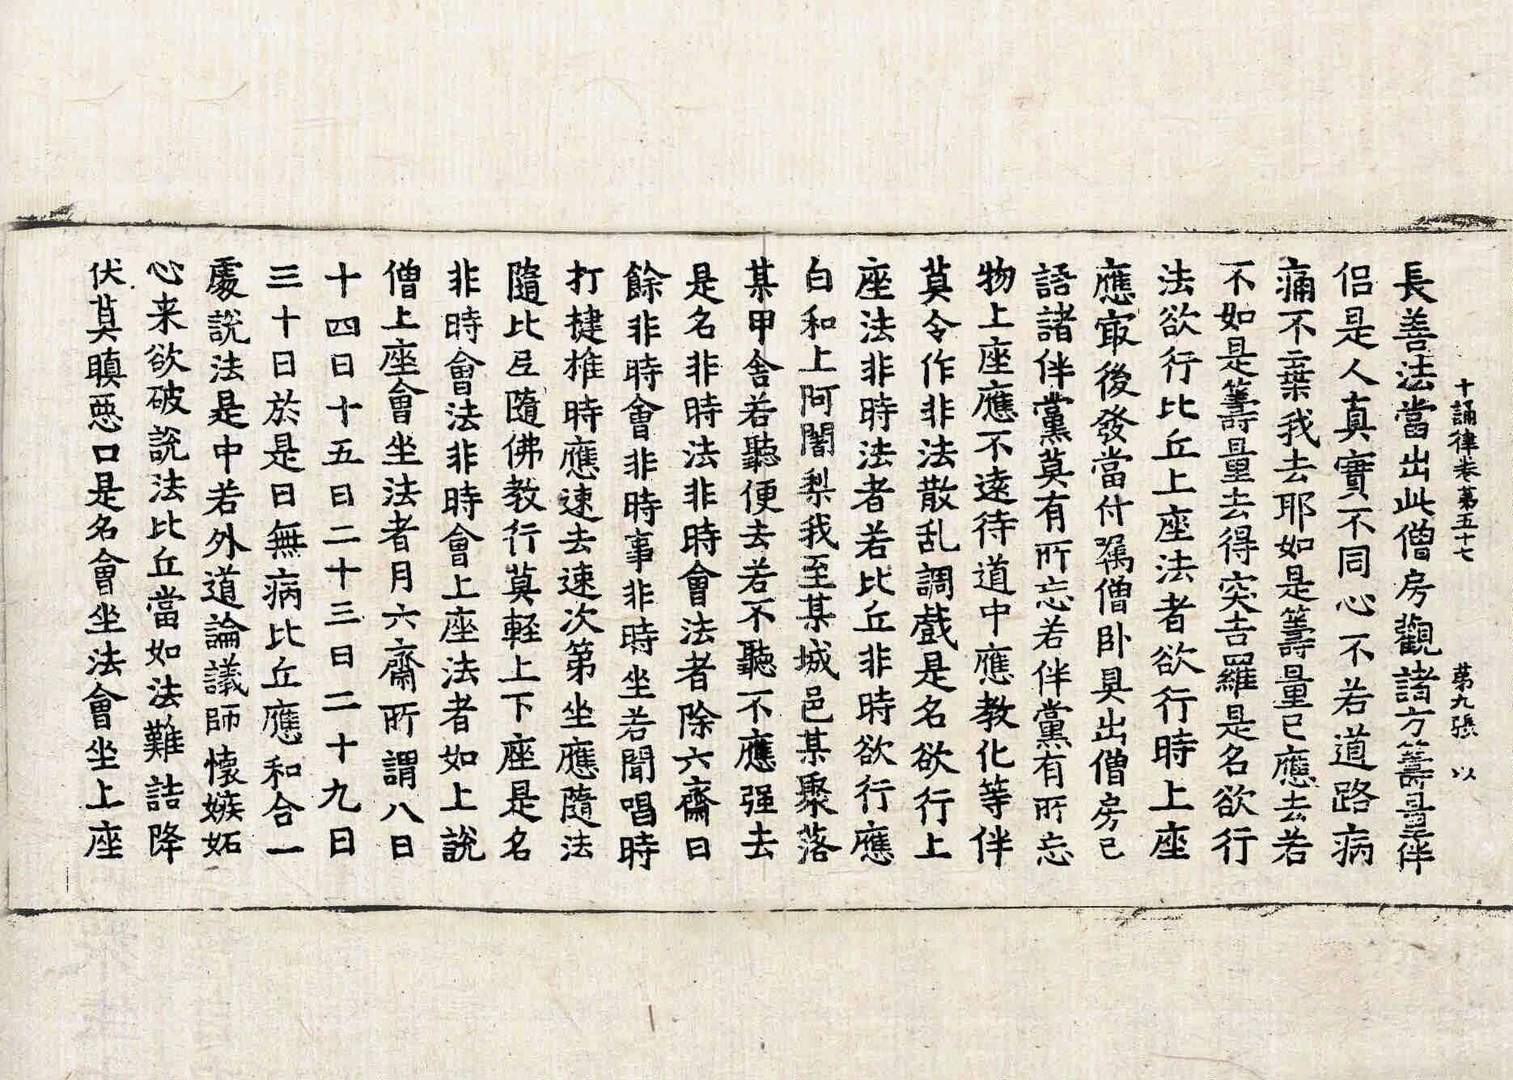 十誦律卷第五十七　第九張　以
長善法當出此僧房觀諸方籌量伴
侣是人真實不同心不若道路病
痛不棄我去耶如是籌量已應去若
不如是籌量去得突吉羅是名欲行
法欲行比丘上座法者欲行時上座
應㝡後發當付囑僧卧具出僧房已
語諸伴黨莫有所忘若伴黨有所忘
物上座應不遠待道中應教化等伴
莫令作非法散乱調戲是名欲行上
座法非時法者若比丘非時欲行應
白和上阿闍梨我至某城邑某聚落
某甲舍若聽便去若不聽不應强去
是名非時法非時會法者除六齋日
餘非時會非時事非時坐若聞唱時
打揵椎時應速去速次第坐應隨法
隨比丘隨佛教行莫輕上下座是名
非時會法非時會上座法者如上說
僧上座會坐法者月六齋所謂八日
十四日十五日二十三日二十九日
三十日於是日無病比丘應和合一
處說法是中若外道論議師懷嫉妬
心来欲破說法比丘當如法難詰降
伏莫瞋惡口是名會坐法會坐上座